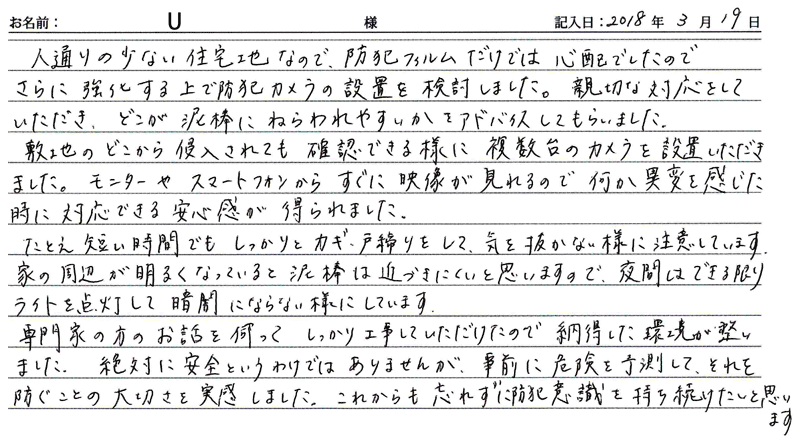 お名前： U 様 記入日：2018年 3月 19日
人通りの少ない住宅地なので、防犯フィルムだけでは心配でしたので
さらに強化する上で防犯カメラの設置を検討しました。親切な対応をして
いただき、どこが泥棒にねらわれやすいかをアドバイスしてもらいました。
敷地のどこから侵入されても確認できる様に複数台のカメラを設置いただき
ました。モニターやスマートフォンからすぐに映像が見れるので何か異変を感じた
時に対応できる安心感が得られました。
たとえ短い時間でもしっかりとカギ・戸締りをして、気を抜かない様に注意しています。
家の周辺が明るくなっていると泥棒は近づきにくいと思いますので、夜間はできる限り
ライトを点灯して暗闇にならない様にしています。
専門家の方のお話を伺ってしっかり工事していただけたので納得した環境が整い
ました。絶対に安全というわけではありませんが、事前に危険を予測して、それを
防ぐことの大切さを実感しました。これからも忘れずに防犯意識を持ち続けたいと思い
ます